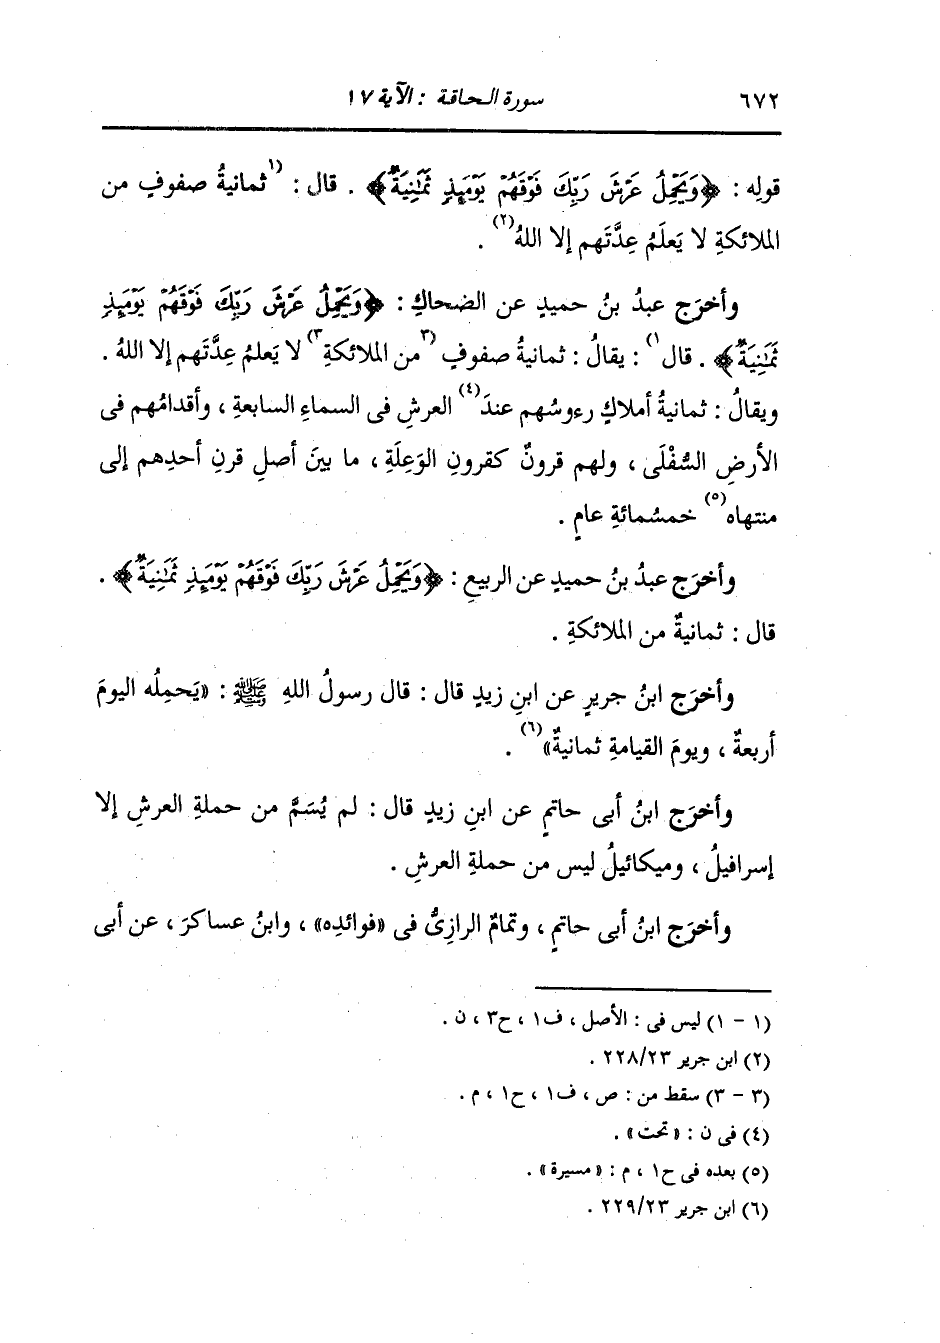 ٦٧٢ سورة الحاقة : الآية ١٧
قولِه : ﴿وَيَحْمِلُ عَرْشَ رَبِّكَ فَوْقَهُمْ يَوْمَئِذٍ ثَمَٰنِيَةٌ﴾ . قال : (١ثمانيةُ صفوفٍ من
الملائكةِ لا يَعلَمُ عِدَّتَهم إلا اللهُ(٢) .
وأخرَج عبدُ بنُ حميدٍ عن الضحاكِ : ﴿وَيَحْمِلُ عَرْشَ رَبِّكَ فَوْقَهُمْ يَوْمَئِذٍ
ثَمَٰنِيَةٌ﴾ . قال١) : يقالُ : ثمانيةُ صفوفٍ (٣من الملائكةِ٣) لا يَعلمُ عِدَّتَهم إلا اللهُ .
ويقالُ : ثمانيةُ أملاكٍ رءوسُهم عندَ(٤) العرشِ فى السماءِ السابعةِ ، وأقدامُهم فى
الأرضِ السُّفْلَى ، ولهم قرونٌ كقرونِ الوَعِلَةِ ، ما بينَ أصلِ قرنِ أحدِهم إلى
منتهاه(٥) خمسُمائةِ عامٍ .
وأخرَج عبدُ بنُ حميدٍ عن الربيعِ : ﴿وَيَحْمِلُ عَرْشَ رَبِّكَ فَوْقَهُمْ يَوْمَئِذٍ ثَمَٰنِيَةٌ﴾ .
قال : ثمانيةٌ من الملائكةِ .
وأخرَج ابنُ جريرٍ عن ابنِ زيدٍ قال : قال رسولُ اللهِ ﷺ : «يَحمِلُه اليومَ
أربعةٌ ، ويومَ القيامةِ ثمانيةٌ»(٦) .
وأخرَج ابنُ أبى حاتمٍ عن ابنِ زيدٍ قال : لم يُسَمَّ من حملةِ العرشِ إلا
إسرافيلُ ، وميكائيلُ ليس من حملةِ العرشِ .
وأخرَج ابنُ أبى حاتمٍ ، وتمامٌ الرازىُّ فى «فوائدِه» ، وابنُ عساكرَ ، عن أبى
(١ - ١) ليس فى : الأصل ، ف١ ، ح٣ ، ن .
(٢) ابن جرير ٢٢٨/٢٣ .
(٣ - ٣) سقط من : ص ، ف١ ، ح١ ، م .
(٤) فى ن : «تحت» .
(٥) بعده فى ح١ ، م : «مسيرة» .
(٦) ابن جرير ٢٢٩/٢٣ .